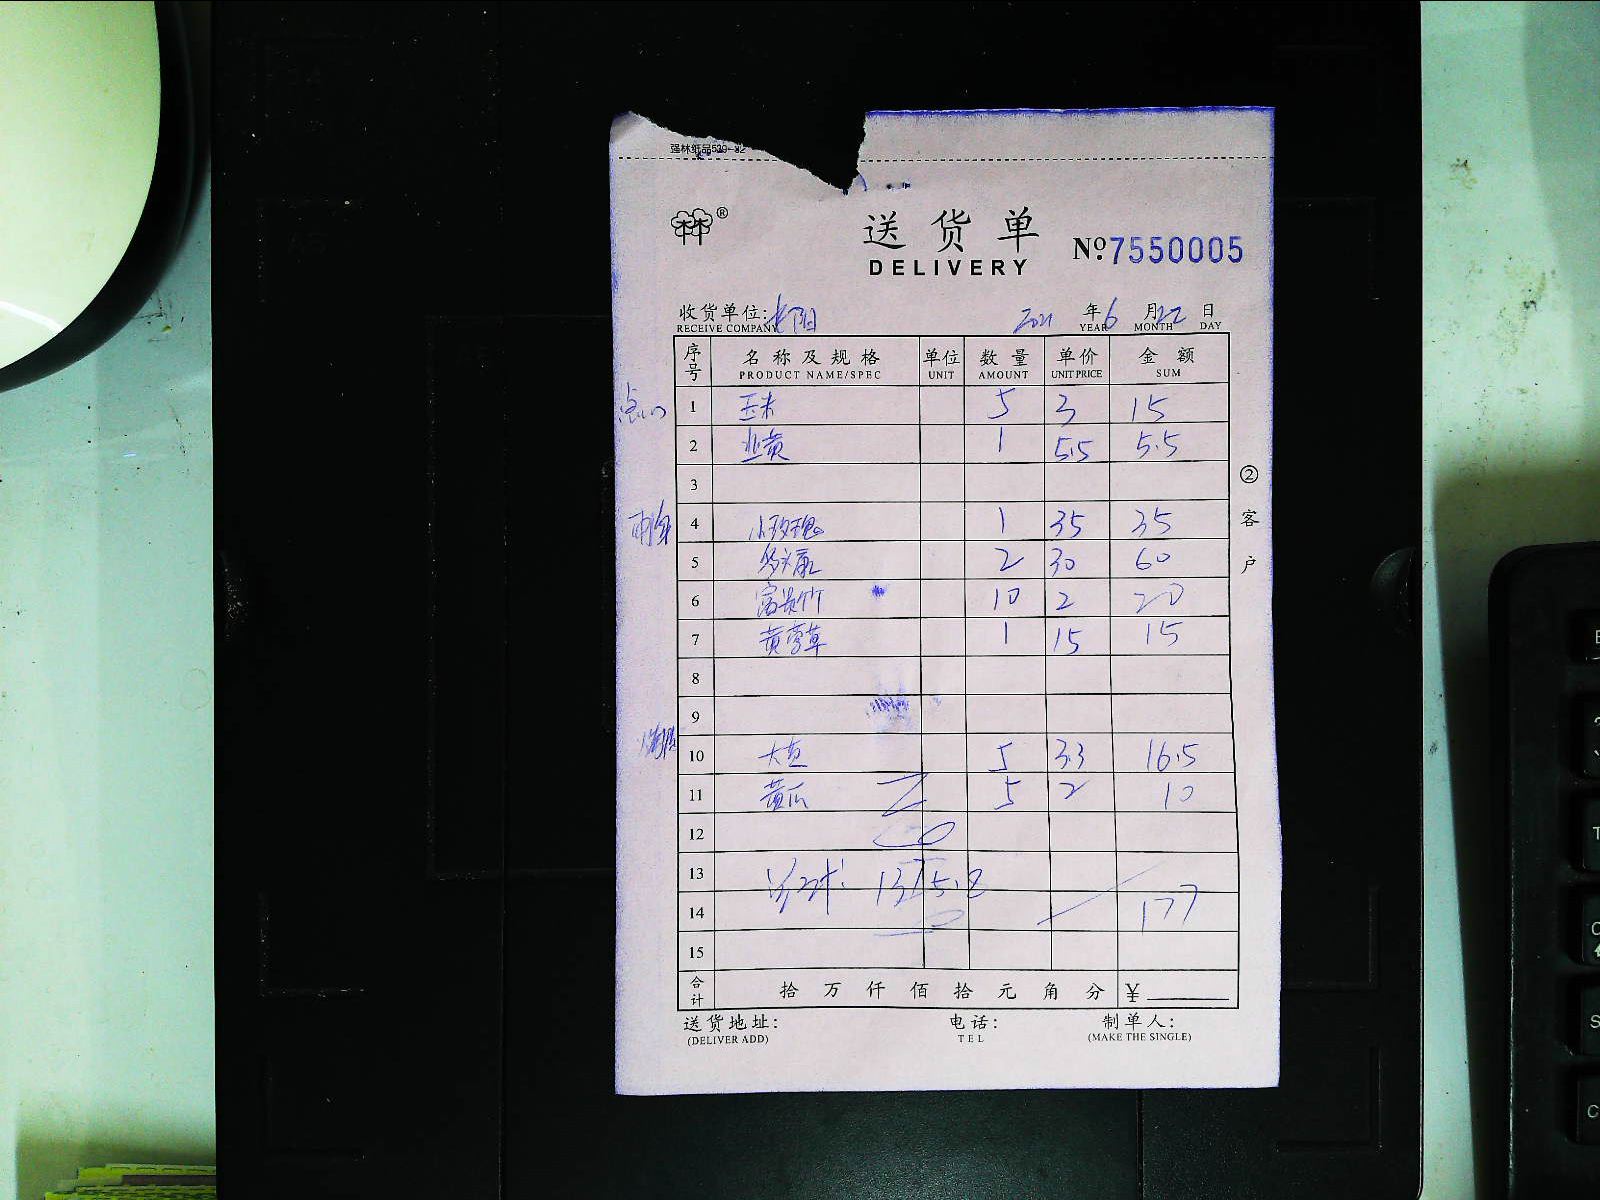 强林纸品539-32
®
送货单
DELIVERY
Nº:7550005
收货单位:
RECEIVE COMPANY
2021年6月22日
YEAR MONTH DAY
序号 名称及规格 单位 数量 单价 金额
PRODUCT NAME/SPEC UNIT AMOUNT UNIT PRICE SUM
1 玉米 5 3 15
2 韭黄 1 5.5 5.5
3
4 小玫瑰 1 35 35
5 多头康 2 30 60
6 富贵竹 10 2 20
7 黄莺草 1 15 15
8
9
10 大豆 5 3.3 16.5
11 黄瓜 5 2 10
12
13
14 177
15
合计 拾万仟佰拾元角分 ¥
送货地址: 电话: 制单人:
(DELIVER ADD) TEL (MAKE THE SINGLE)
②客户